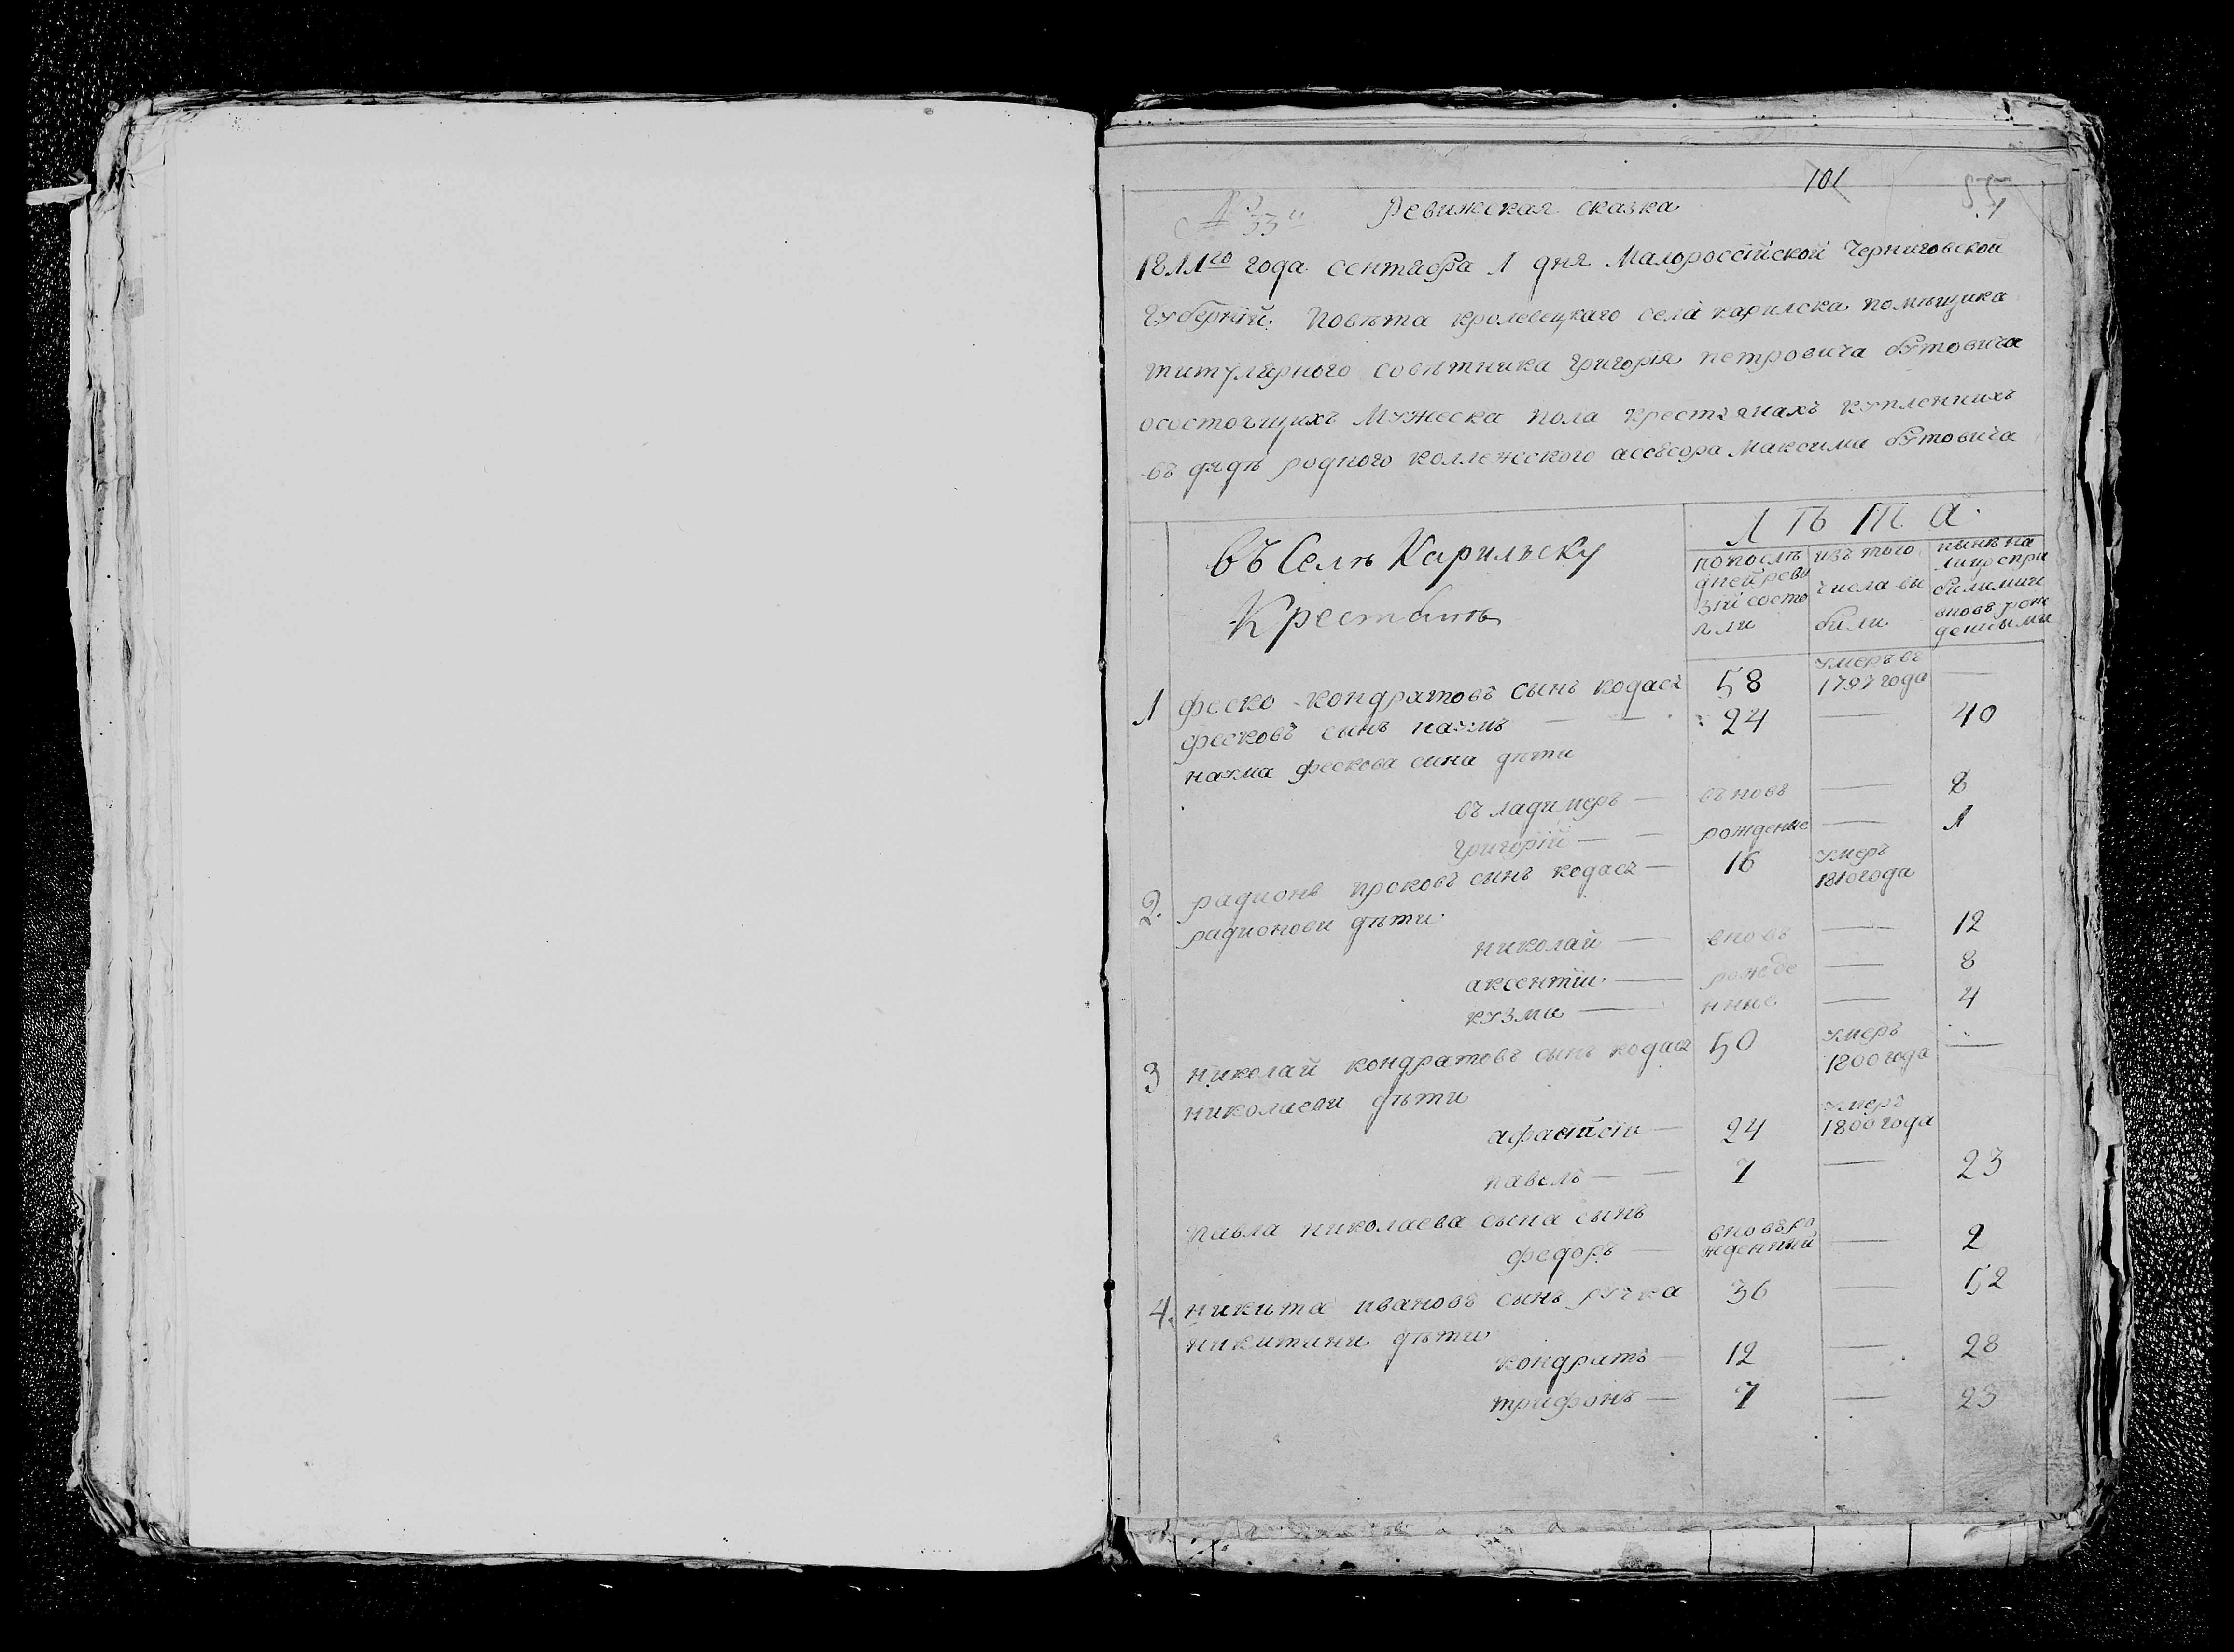 101
№ 33
Ревижская сказка
1811го года сентября 1 дня Малороссійской Черниговской
Губерніи Повѣта кролевецкаго села карилска помѣщика
титулярного совѣтника григорія петровича бутовича
осостоящихъ мужеска пола крестьянахъ купленнихъ
въ дядѣ родного коллежского ассесора максима бутовича
Въ Селѣ Карильску
Крестьянъ
Лѣта
по послѣ
дней реви
зіи состо
яли
изъ того
числа вы
были
нынѣ на
лицо с при
былими и
вновь рож
денными
1 феско кондратовъ сынъ кодасъ 58 умеръ въ 1797 года —
фесковъ сынъ наумъ — — 24 — 40
наума фескова сина дѣти
въладимеръ — въновъ — 8
григорій — — рождение — 1
2. радионъ прсковъ сынъ кодасъ — 16 умеръ 1810 года
радионови дѣти
николай — вновъ — 12
аксентіи — рожде — 8
кузма — нние — 4
3 николай кондратовъ сынъ кодасъ 50 умеръ 1800 года —
николаеви дѣти
афанасіи — 24 умеръ 1800 года
павелъ — — 7 — 23
павла николаева сына сынъ
федоръ — вновъ рожденный — 2
4. никита ивановъ сынъ ручка 36 — 52
никитини дѣти
кондратъ — 12 — 28
трифонъ — 7 — 23